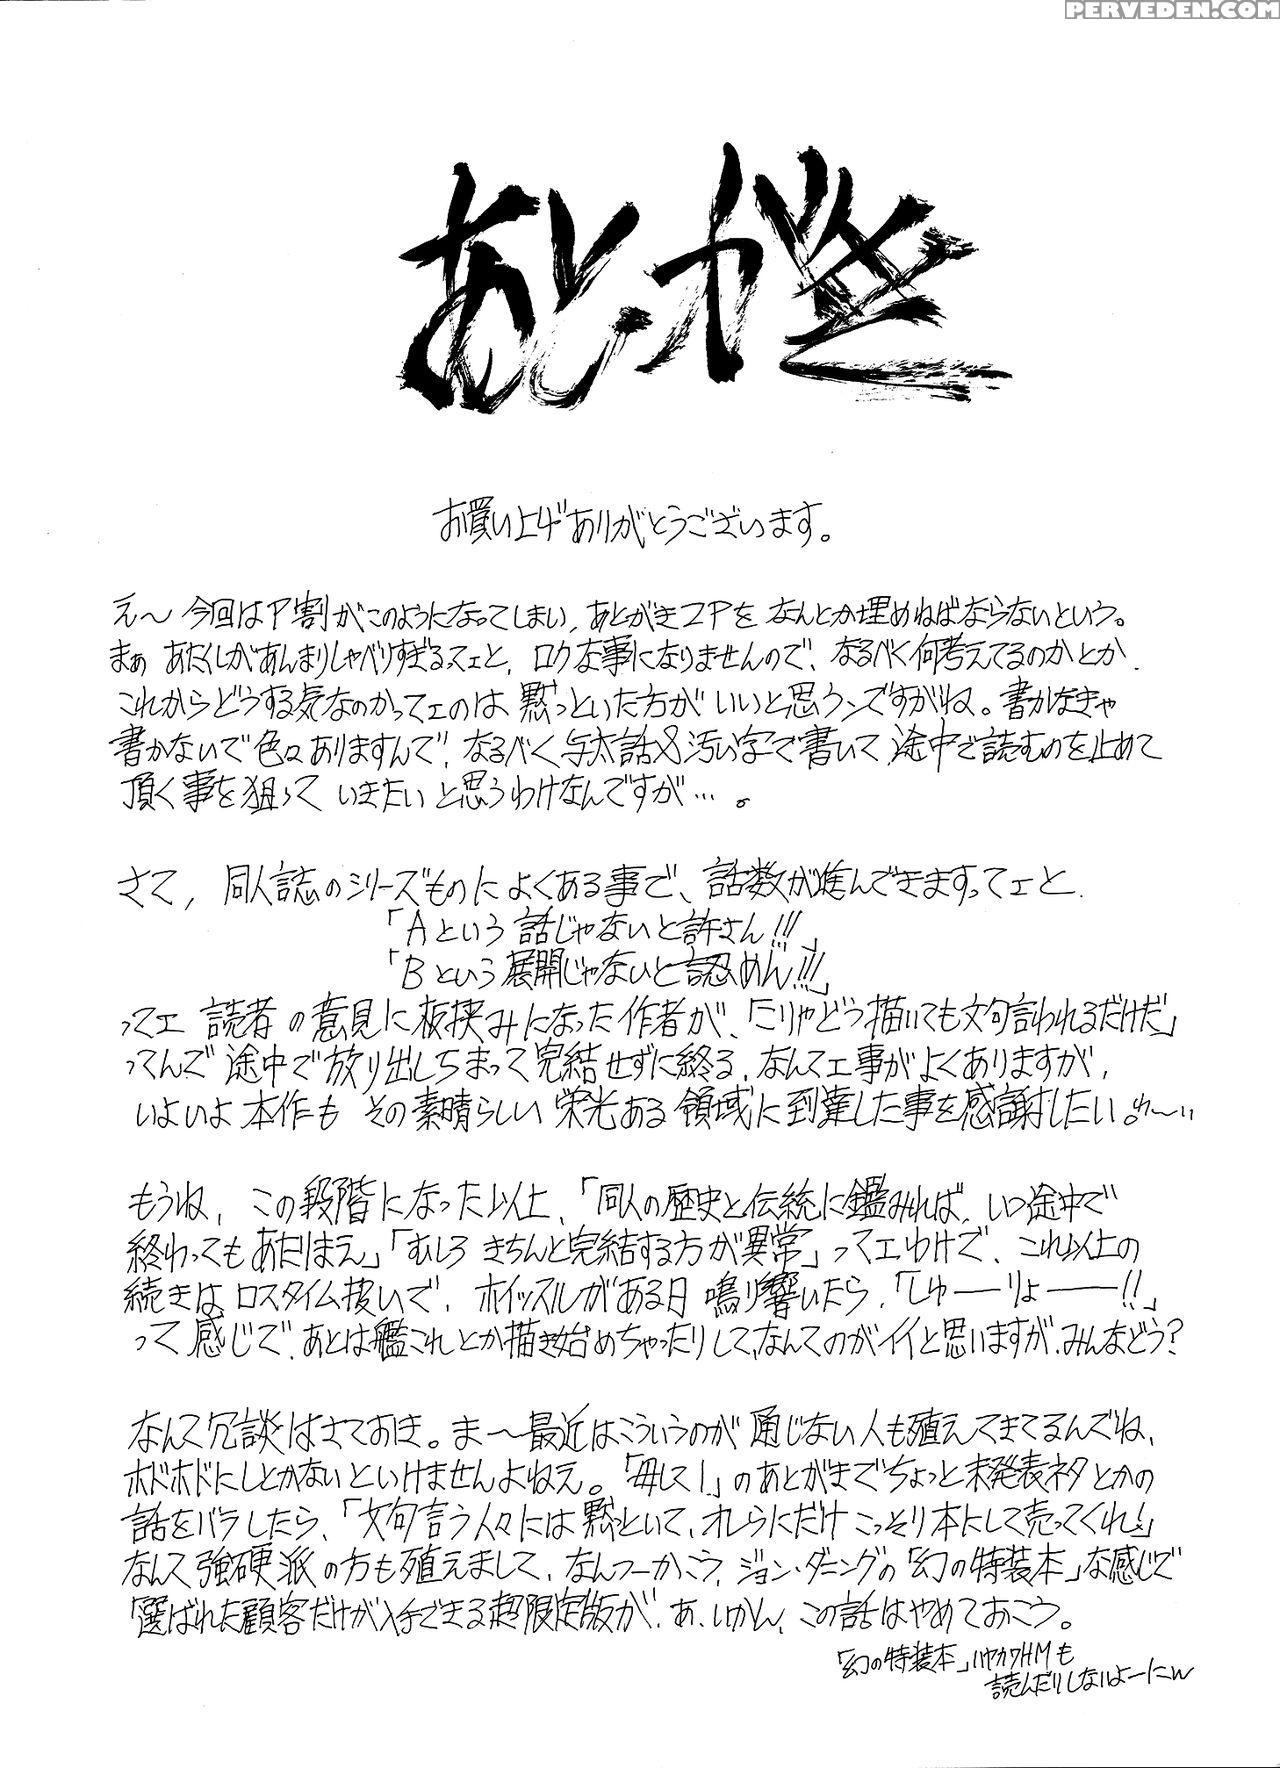 PERVEDEN.COM
あとがき
お買い上げありがとうございます。
え〜今回はP割がこのようになってしまい、あとがき2Pをなんとか埋めねばならないという。
まぁ あたくしがあんまりしゃべりすぎるってェと、ロクな事になりませんので、なるべく何考えてるのかとか、
これからどうする気なのかってェのは黙っといた方がいいと思うンですがね。書かなきゃ
書かないで色々ありますんで、なるべく与太話&汚い字で書いて途中で読むのを止めて
頂く事を狙っていきたいと思うわけなんですが…。
さて、同人誌のシリーズものによくある事で、話数が進んできますってェと、
「Aという話じゃないと許さん!!!」
「Bという展開じゃないと認めん!!!」
ってェ読者の意見に板挟みになった作者が、「こりゃどう描いても文句言われるだけだ」
ってんで途中で放り出しちまって完結せずに終る、なんてェ事がよくありますが、
いよいよ本作もその素晴らしい栄光ある領域に到達した事を感謝したい。
もうね、この段階になった以上、「同人の歴史と伝統に鑑みれば、いつ途中で
終わってもあたりまえ」「むしろきちんと完結する方が異常」ってェわけで、これ以上の
続きはロスタイム扱いで、ホイッスルがある日鳴り響いたら、「しゅーーりょーーー!!」
って感じで、あとは艦これとか描き始めちゃったりして、なんてのがイイと思いますが、みんなどう?
なんて冗談はさておき。ま〜最近はこういうのが通じない人も殖えてきてるんでね、
ホドホドにしとかないといけませんよねえ。「毎して!」のあとがきでちょっと未発表ネタとかの
話をバラしたら、「文句言う人々には黙っといて、オレらにだけこっそり本にして売ってくれ!」
なんて強硬派の方も殖えまして、なんつーかこう、ジョン・ダニングの「幻の特装本」な感じで
「選ばれた顧客だけが入手できる超限定版が、あ、いかん、この話はやめておこう。
「幻の特装本」ハヤカワHMも
読んだりしないよーにw